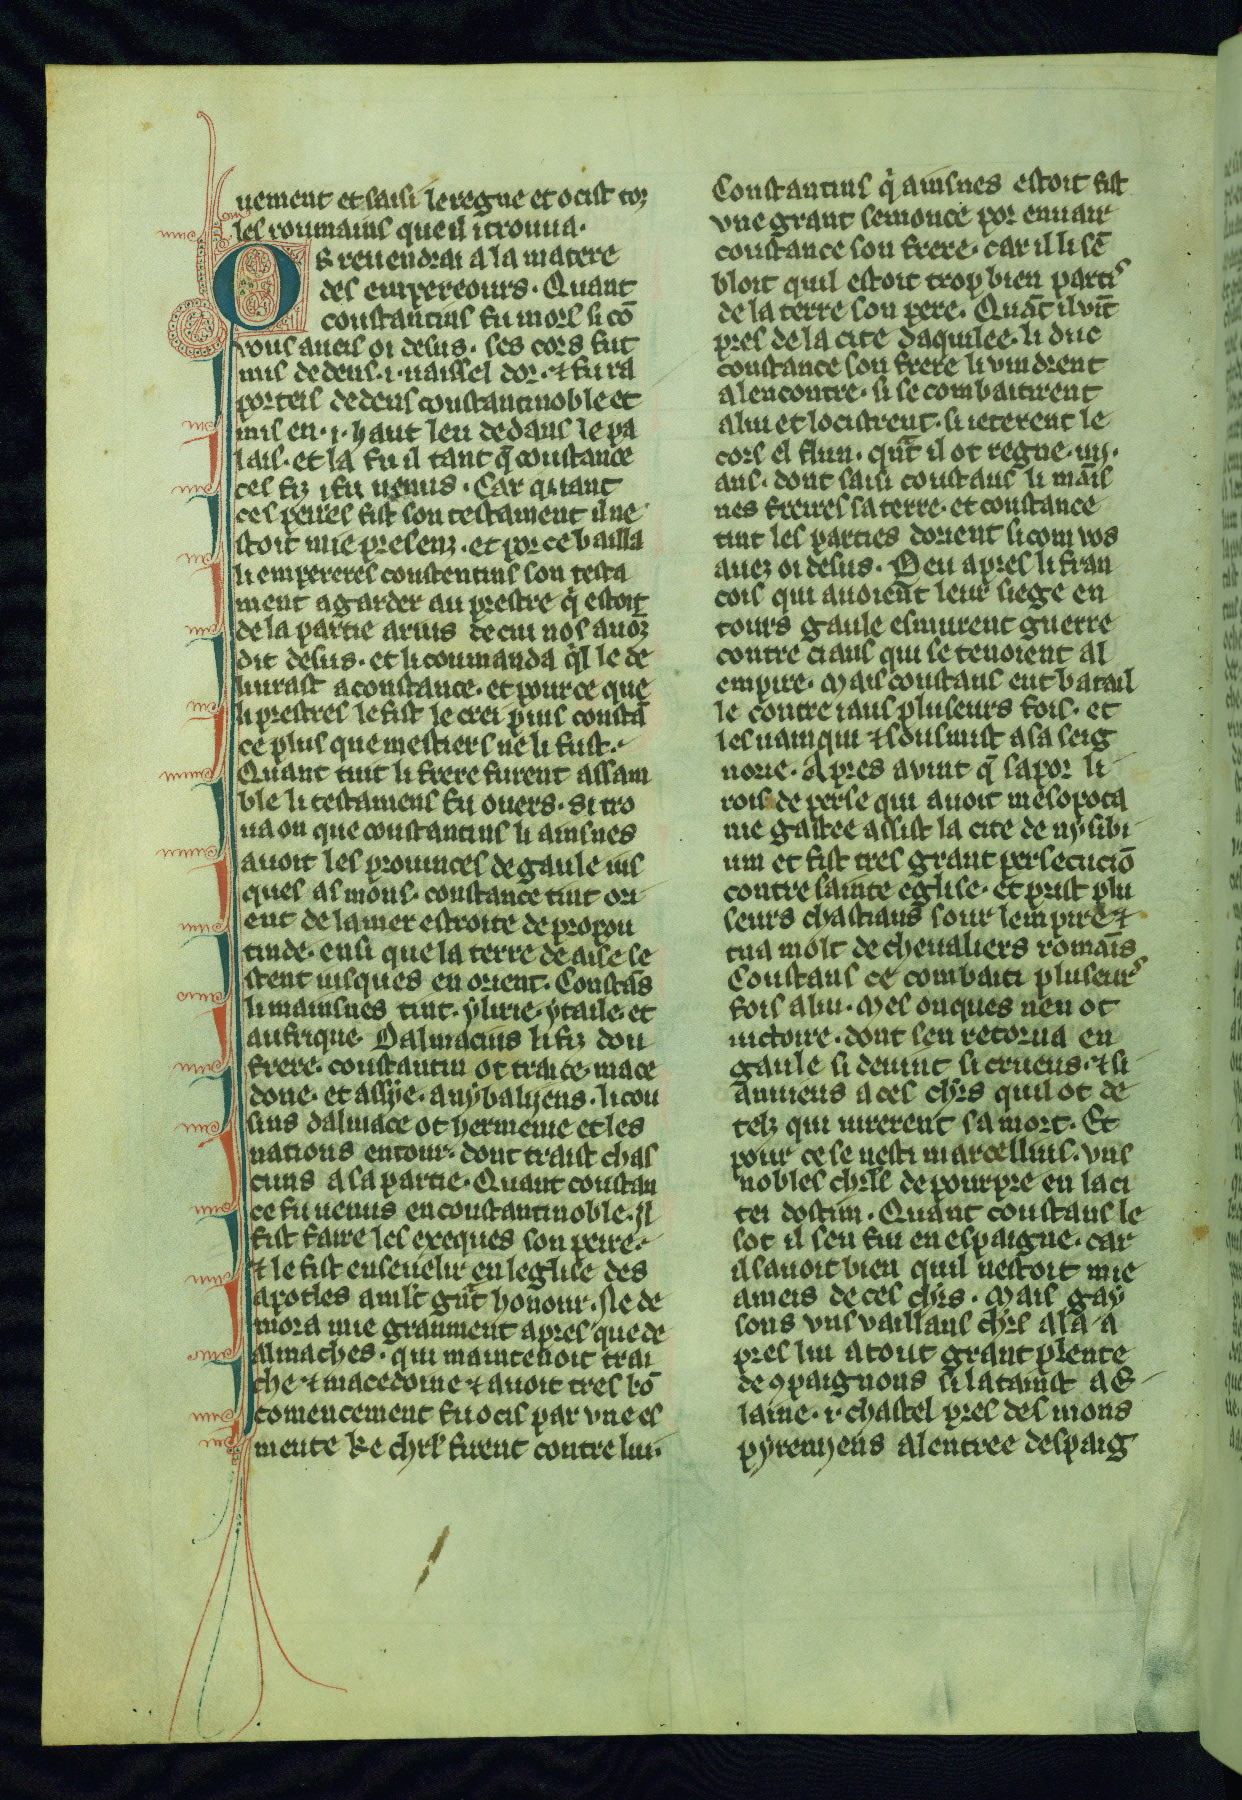 uement et saisi le regne et ocist toz
les roumains que il i trouua.
Or reuendrai a la matere
des empereours. Quant
constantins fu mors si cō
vous aueis oi desus. ses cors fut
mis dedeus .i. uaissel dor. ⁊ fu ra
porteis dedens constantinoble et
mis en .i. haut leu dedans le pa
lais. et la fu il tant q̄ constance
ces fiz i fu uenus. Car quant
ces peires fist son testament il ne
stoit mie presenz. et por ce bailla
li empereres constentins son testa
ment a garder au prestre qi estoit
de la partie arius de cui nos auoz
dit desus. et li coumanda q̄l le de
liurast a constance. et pour ce que
li prestres le fist le crei puis constā
ce plus que mestiers ne li fust.
Quant tuit li frere furent assam
ble li testamens fu ouers. si tro
ua on que constantins li ainsnes
auoit les prouinces de gaule iuis
ques as mons. constance tint ori
ent de la mer estroite de propon
tinde. ensi que la terre de aise se
stent iusques en orient. Constās
li mainsnes tint. ylirie. ytaile. et
aufrique. Dalmacius li fiz dou
frere. constantin ot traice. mace
done. et assye. anybalyens. li cou
sins dalmace ot hermenie et les
nations entour. dont traist chas
cuns a sa partie. Quant constan
ce fu uenus en constantinoble. Il
fist faire les exeques son peire.
⁊ le fist enseuelir en leglise des
apotles a mlt gnt honour. Ne de
mora mie granment apres que de
almaches. qui maintenoit trai
che ⁊ macedoine ⁊ auoit tres bō
comencement fu ocis par vne es
meute ke chrs firent contre lui.
Constantins qi ainsnes estoit fist
vne grant semonce por enuair
constance son frere. car il li sē
bloit quil estoit trop bien partis
de la terre son pere. Quāt il vīt
pres de la cite daquilee. li duc
constance son frere li vindrent
a lencontre. si se combatirent
a lui et locistrent. si ieterent le
cors el flun. qnt il ot regne .iii.
ans. dont saisi constans li māis
nes freires sa terre. et constance
tint les parties dorient si com vos
auez oi desus. Peu apres li fran
cois qui auoient leur siege en
tours gaule esmurent guerre
contre ciaus qui se tenoient al
empire. Mais constans eut batail
le contre iaus pluseurs fois. et
les uainqui ⁊ sousmist a sa seig
norie. Apres auint q̄ sapor li
rois de perse qui auoit mesopota
mie gastee assist la cite de nysibi
um et fist tres grant persecuciō
contre sainte eglise. et prist plu
seurs chastiaus sour lempire ⁊
tua molt de cheualiers romāis
Constans ce combati pluseurs
fois a lui. Mes onques nen ot
uictoire. dont sen retorna en
gaule si deuint si crueus. ⁊ si
anuieus a ces chrs quil ot de
telz qui iurerent sa mort. Et
pour ce se uesti marcellius. vns
nobles chrs de pourpre en la ci
tei dostun. Quant constans le
sot il sen fui en espaigne. car
il sauoit bien quil nestoit mie
ameis de ces chrs. Mais gay
sons vns vaillans chrs ala a
pres lui a tout grant plente
de ꝯpaignons si latainst a e
laine .i. chastel pres des mons
pyrenyens a lentree despaig